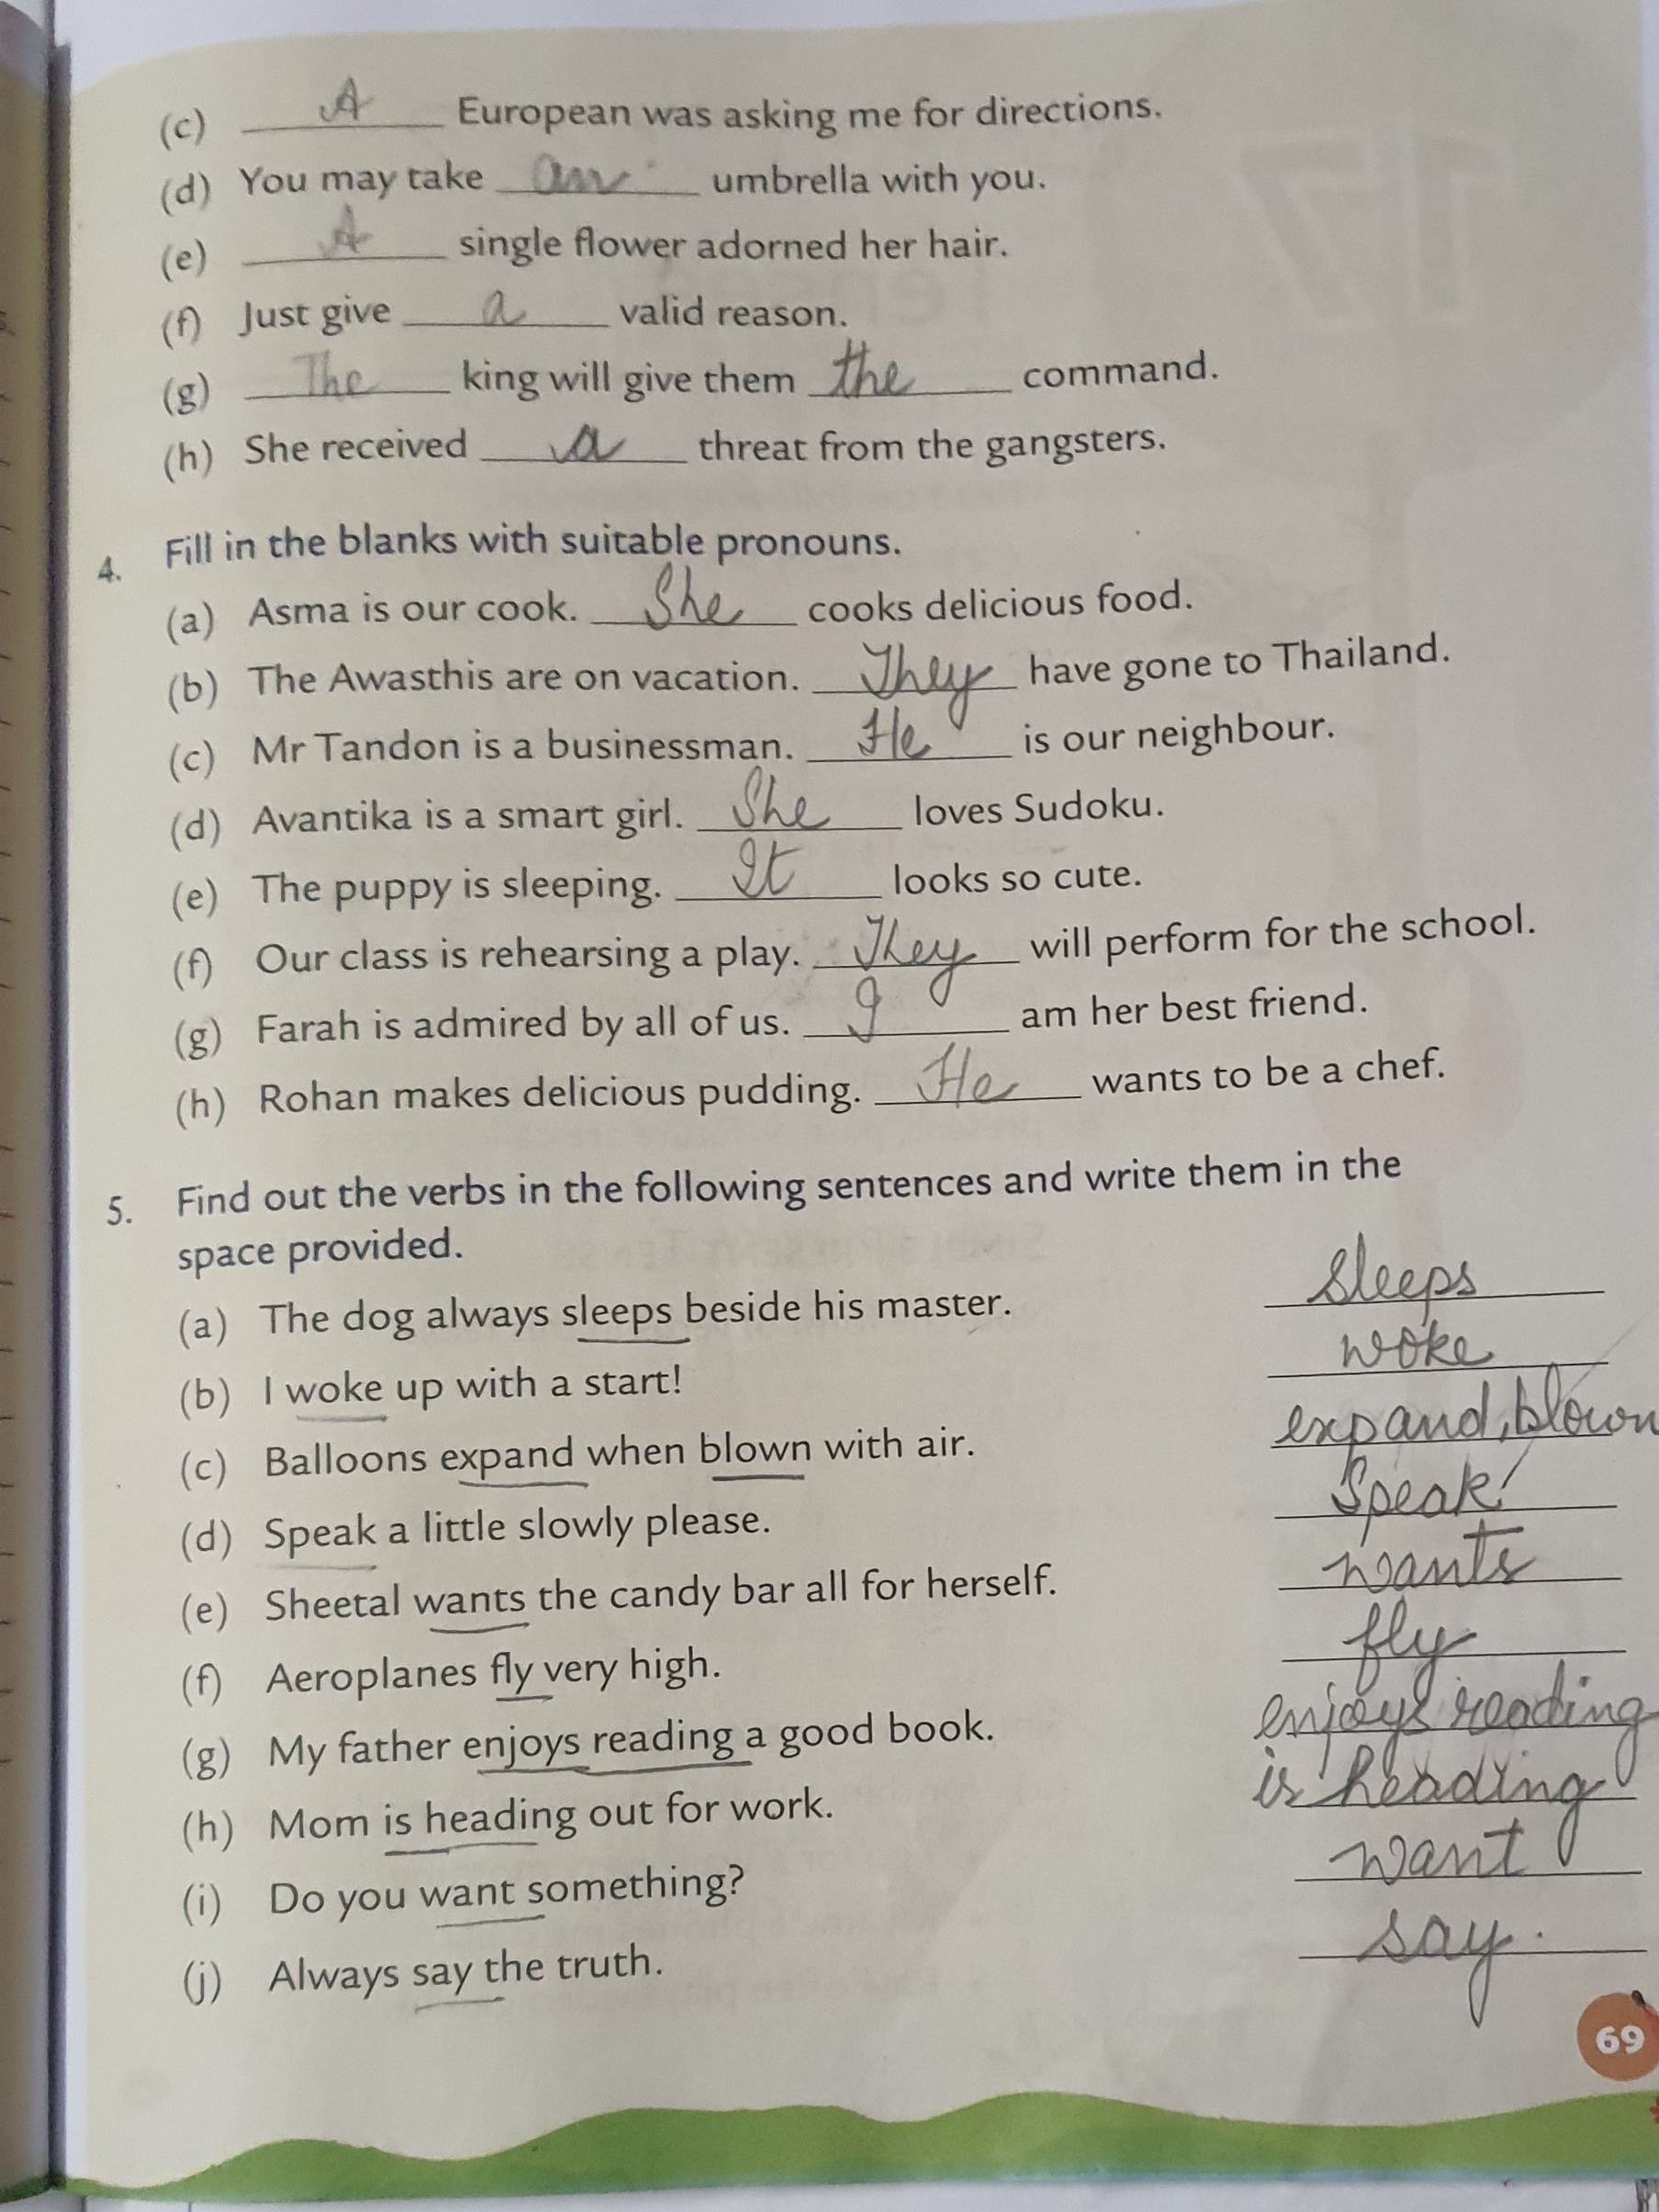 (c) A European was asking me for directions.
(d) You may take an umbrella with you.
(e) A single flower adorned her hair.
(f) Just give a valid reason.
(g) The king will give them the command.
(h) She received a threat from the gangsters.
4. Fill in the blanks with suitable pronouns.
(a) Asma is our cook. She cooks delicious food.
(b) The Awasthis are on vacation. They have gone to Thailand.
(c) Mr Tandon is a businessman. He is our neighbour.
(d) Avantika is a smart girl. She loves Sudoku.
(e) The puppy is sleeping. It looks so cute.
(f) Our class is rehearsing a play. They will perform for the school.
(g) Farah is admired by all of us. I am her best friend.
(h) Rohan makes delicious pudding. He wants to be a chef.
5. Find out the verbs in the following sentences and write them in the
space provided.
(a) The dog always sleeps beside his master. sleeps
(b) I woke up with a start! woke
(c) Balloons expand when blown with air. expand, blown
(d) Speak a little slowly please. Speak
(e) Sheetal wants the candy bar all for herself. wants
(f) Aeroplanes fly very high. fly
(g) My father enjoys reading a good book. enjoys reading
(h) Mom is heading out for work. is heading
(i) Do you want something? want
(j) Always say the truth. say.
69